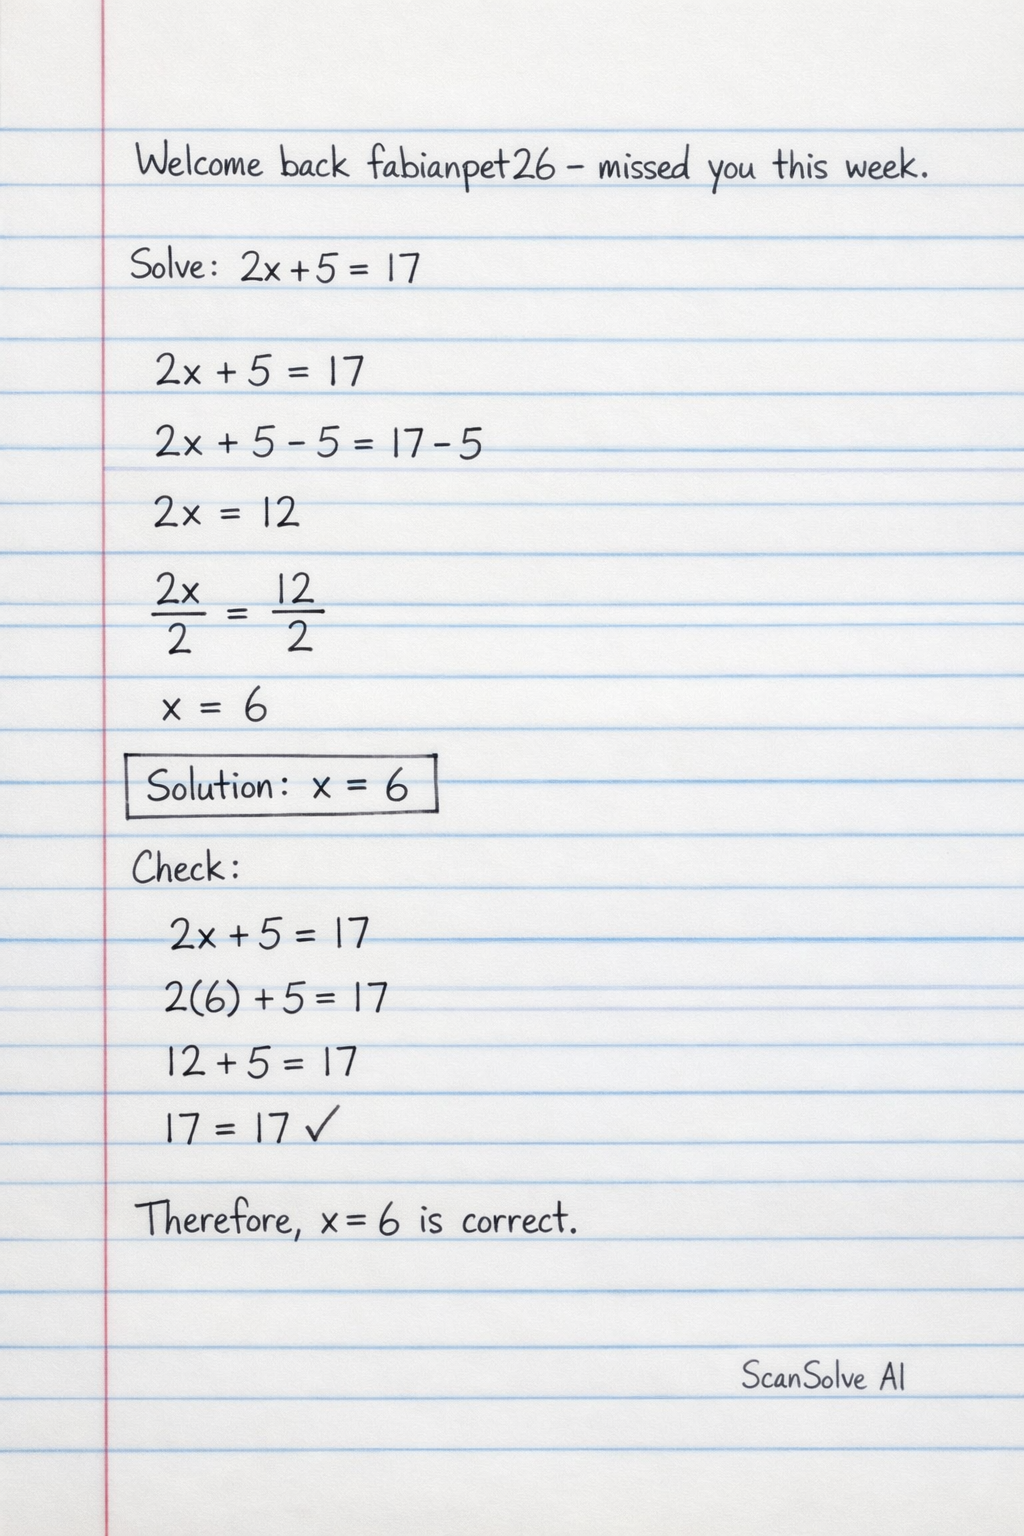 Welcome back fabianpet26 – missed you this week.
Solve: 2x + 5 = 17
2x + 5 = 17
2x + 5 - 5 = 17 - 5
2x = 12
2x/2 = 12/2
x = 6
Solution: x = 6
Check:
2x + 5 = 17
2(6) + 5 = 17
12 + 5 = 17
17 = 17 ✓
Therefore, x = 6 is correct.
ScanSolve AI